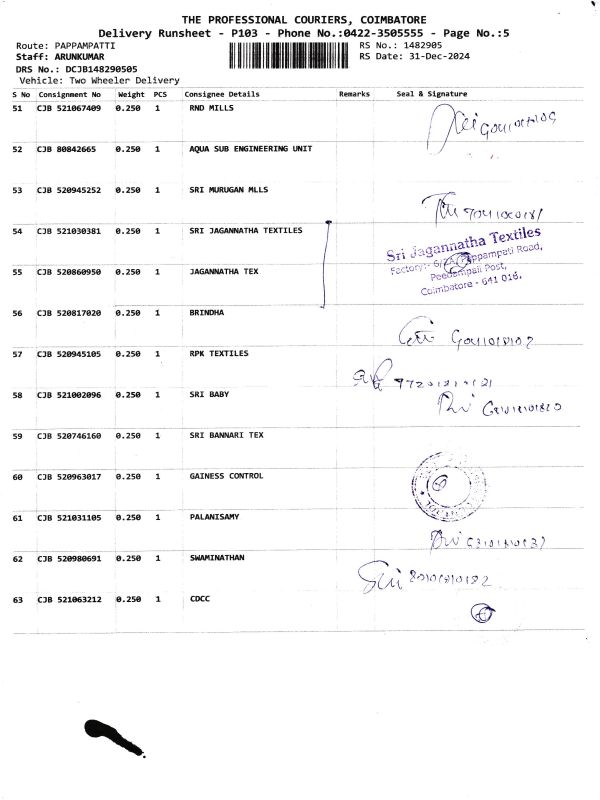 THE PROFESSIONAL COURIERS, COIMBATORE
Delivery Runsheet - P103 - Phone No.:0422-3505555 - Page No.:5
Route: PAPPAMPATTI RS No.: 1482905
Staff: ARUNKUMAR RS Date: 31-Dec-2024
DRS No.: DCJB148290505
Vehicle: Two Wheeler Delivery
S No Consignment No Weight PCS Consignee Details Remarks Seal & Signature
51 CJB 521067409 0.250 1 RND MILLS
52 CJB 80842665 0.250 1 AQUA SUB ENGINEERING UNIT
53 CJB 520945252 0.250 1 SRI MURUGAN MLLS
54 CJB 521030381 0.250 1 SRI JAGANNATHA TEXTILES
Sri Jagannatha Textiles
Factory:- Pappampati Road,
Peedampali Post,
Coimbatore - 641 016.
55 CJB 520860950 0.250 1 JAGANNATHA TEX
56 CJB 520817020 0.250 1 BRINDHA
57 CJB 520945105 0.250 1 RPK TEXTILES
58 CJB 521002096 0.250 1 SRI BABY
59 CJB 520746160 0.250 1 SRI BANNARI TEX
60 CJB 520963017 0.250 1 GAINESS CONTROL
61 CJB 521031105 0.250 1 PALANISAMY
62 CJB 520980691 0.250 1 SWAMINATHAN
63 CJB 521063212 0.250 1 CDCC